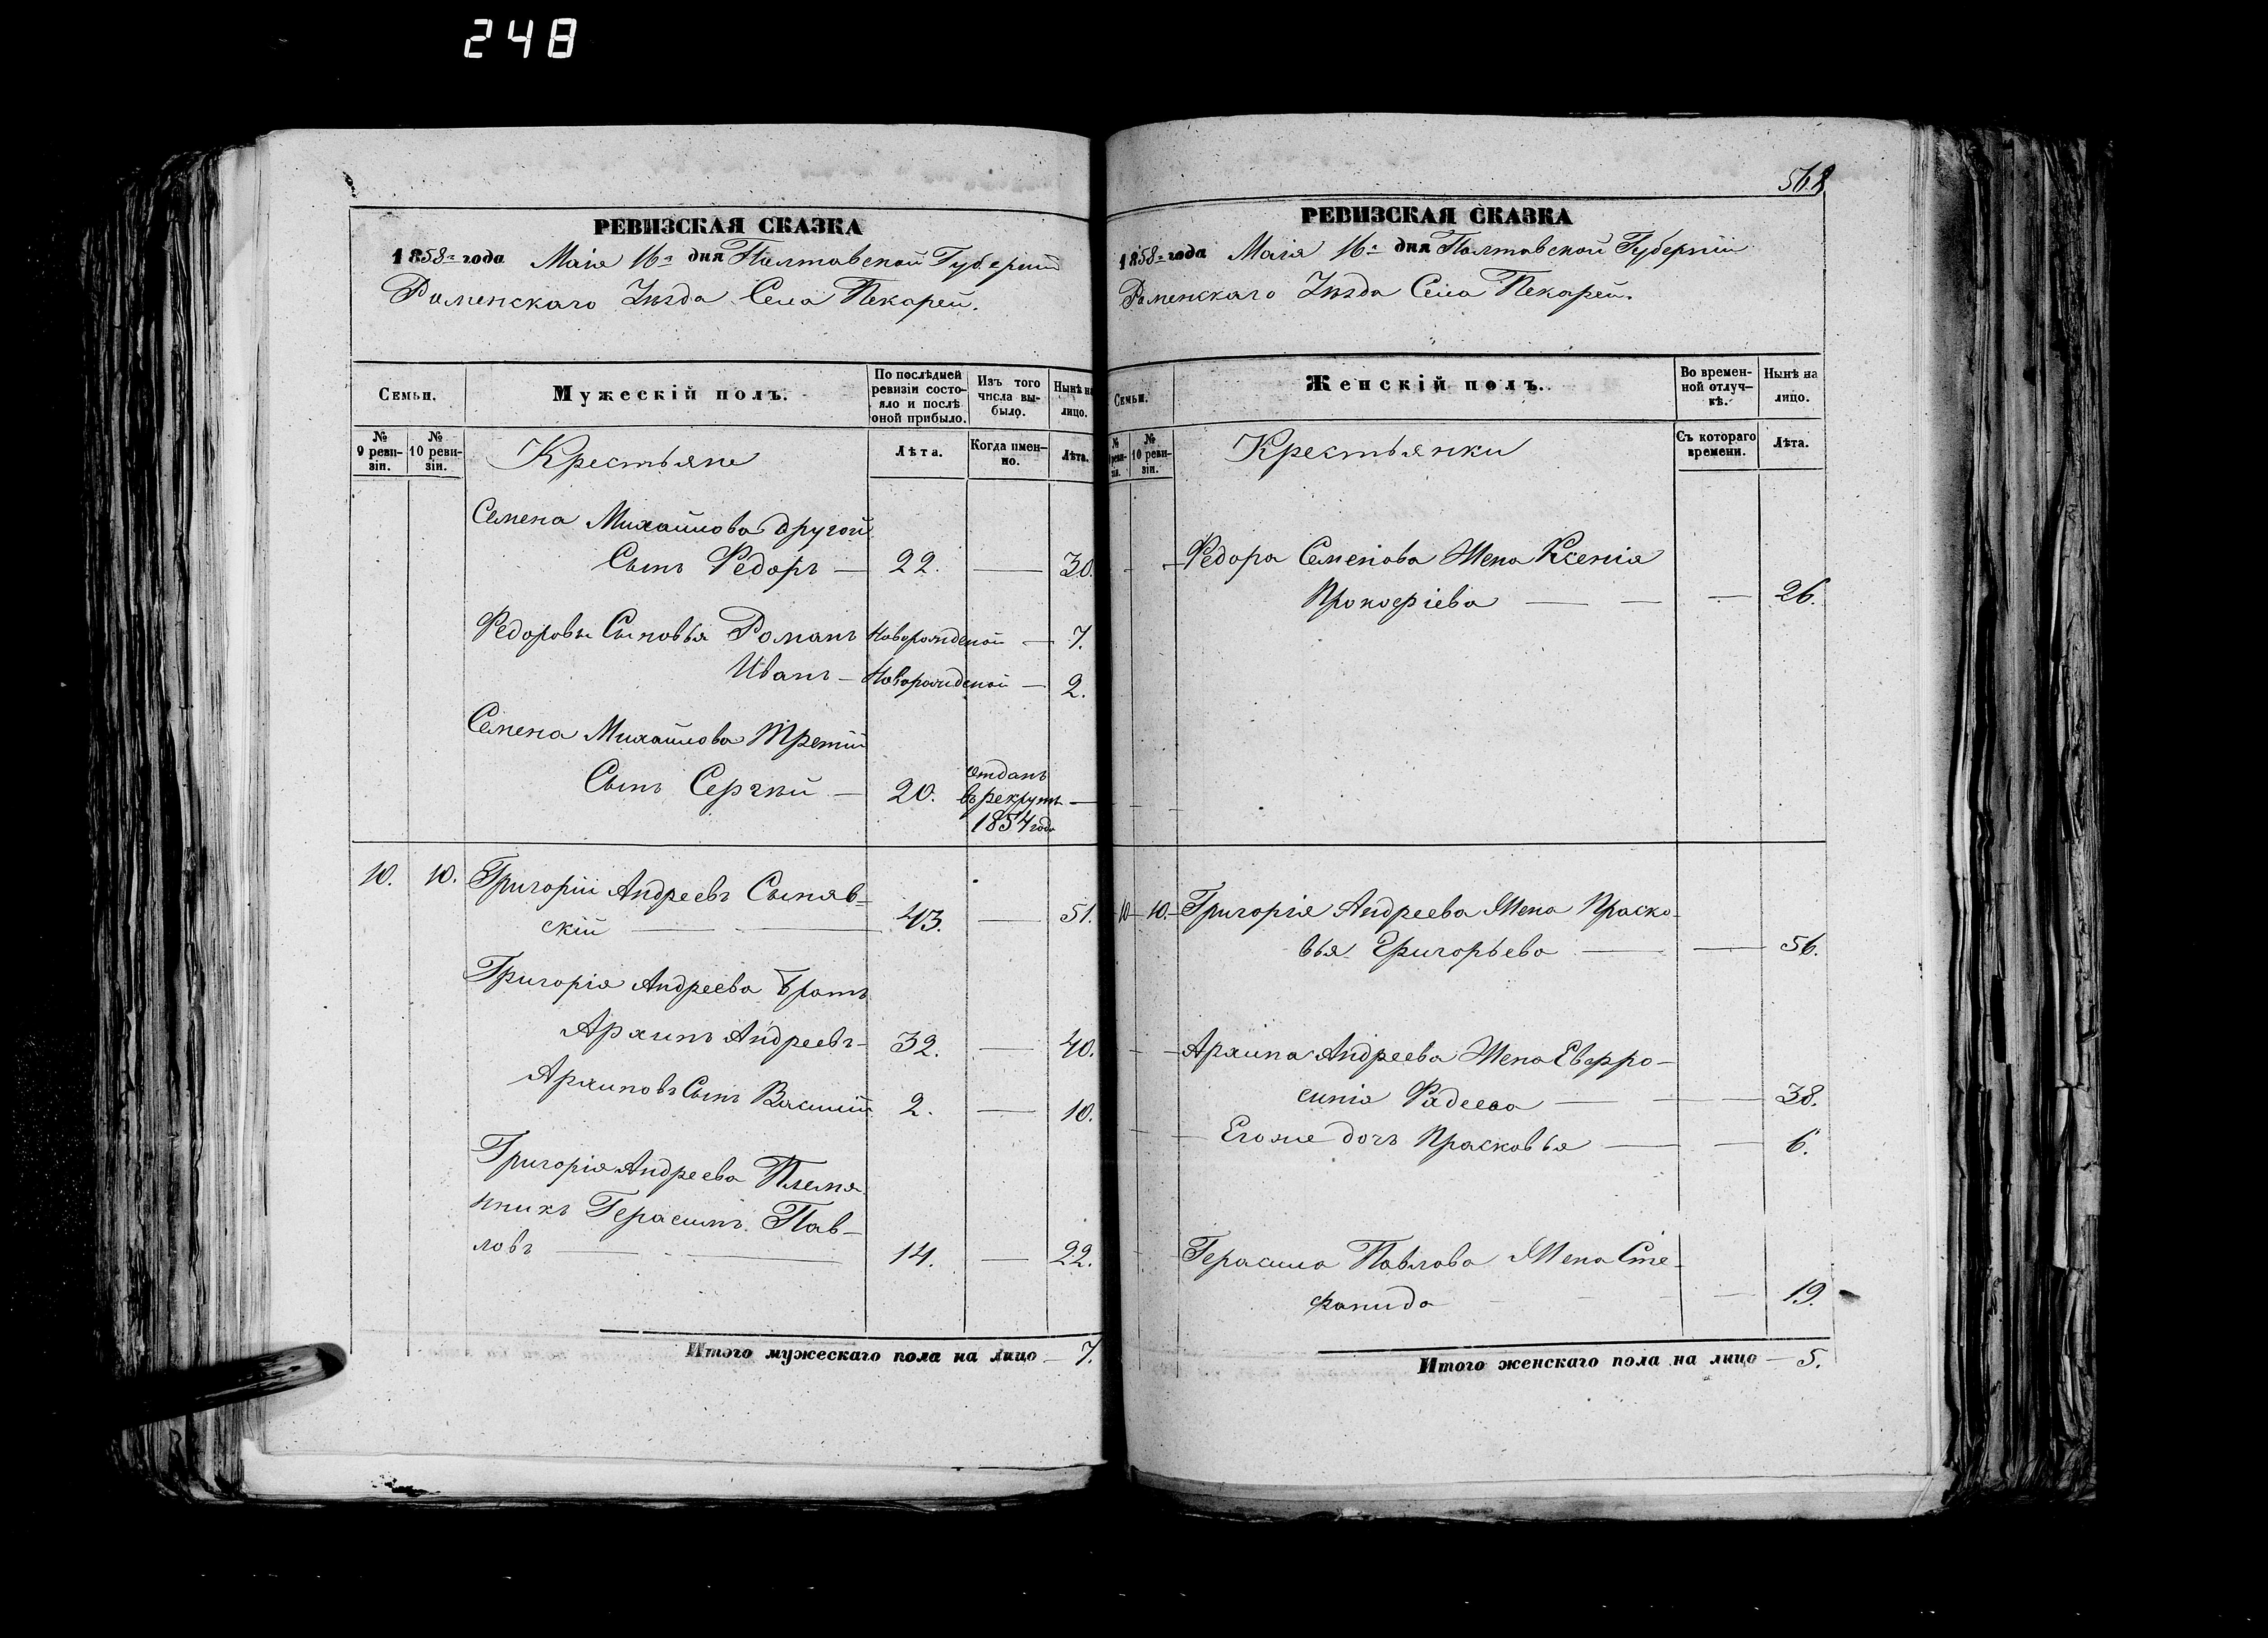 248
РЕВИЗСКАЯ СКАЗКА
1858-го года Маія 16-го дня Полтавской Губерніи
Роменскаго Уѣзда Села Пекарей.
Семьи.
Мужескій полъ.
По послѣдней ревизіи состояло и послѣ оной прибыло.
Изъ того числа выбыло.
Нынѣ на лицо.
№ 9 ревизіи.
№ 10 ревизіи.
Крестьяне
Лѣта.
Когда именно.
Лѣта.
Семена Михайлова другой
Сынъ Ѳедоръ — 22. — 30.
Ѳедоровы Сыновья Романъ Новорожденой — 7.
Иванъ — Новорожденой — 2.
Семена Михайлова Третій
Сынъ Сергѣй — 20. отданъ въ рекруты 1854 года —
10. 10. Григорій Андреевъ Сыняв-
скій — 43. — 51.
Григорія Андреева Братъ
Архипъ Андреевъ — 32. — 40.
Архиповъ Сынъ Василій 2. — 10.
Григорія Андреева Племя
нникъ Герасимъ Пав-
ловъ — 14. — 22.
Итого мужескаго пола на лицо — 7.
568
РЕВИЗСКАЯ СКАЗКА
1858-го года Маія 16-го дня Полтавской Губерніи
Роменскаго Уѣзда Села Пекарей.
Семьи.
Женскій полъ.
Во временной отлучкѣ.
Нынѣ на лицо.
№ 9 ревизіи.
№ 10 ревизіи.
Крестьянки
Съ котораго времени.
Лѣта.
Ѳедора Семенова Жена Ксенія
Прокофіева — — — 26.
10 10. Григорія Андреева Жена Праско-
вья Григорьева — — 56.
Архипа Андреева Жена Евфро-
синія Фадеева — — — 38.
Егоже дочь Прасковья — — 6.
Герасима Павлова Жена Сте-
фанида — — — 19.
Итого женскаго пола на лицо — 5.